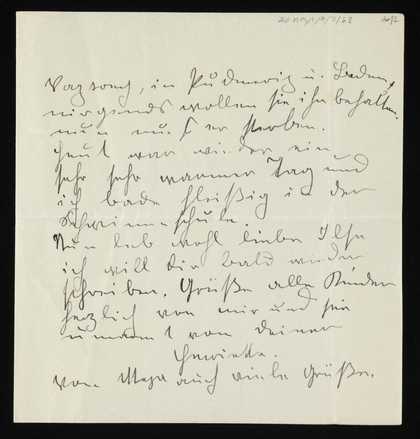 in Pudmeritz u. Baden,
nirgends wollen sie ihn behalten.
nun muß er sterben.
Heut war wieder ein
sehr sehr warmer Tag und
ich bade fleißig in der
Schwimmschule
Nun leb wohl liebe Ilse
ich will dir bald wieder
schreiben. Grüße alle Kinder
herzlich von mir und sei
umarmt von deiner

Von auch viele Grüße.